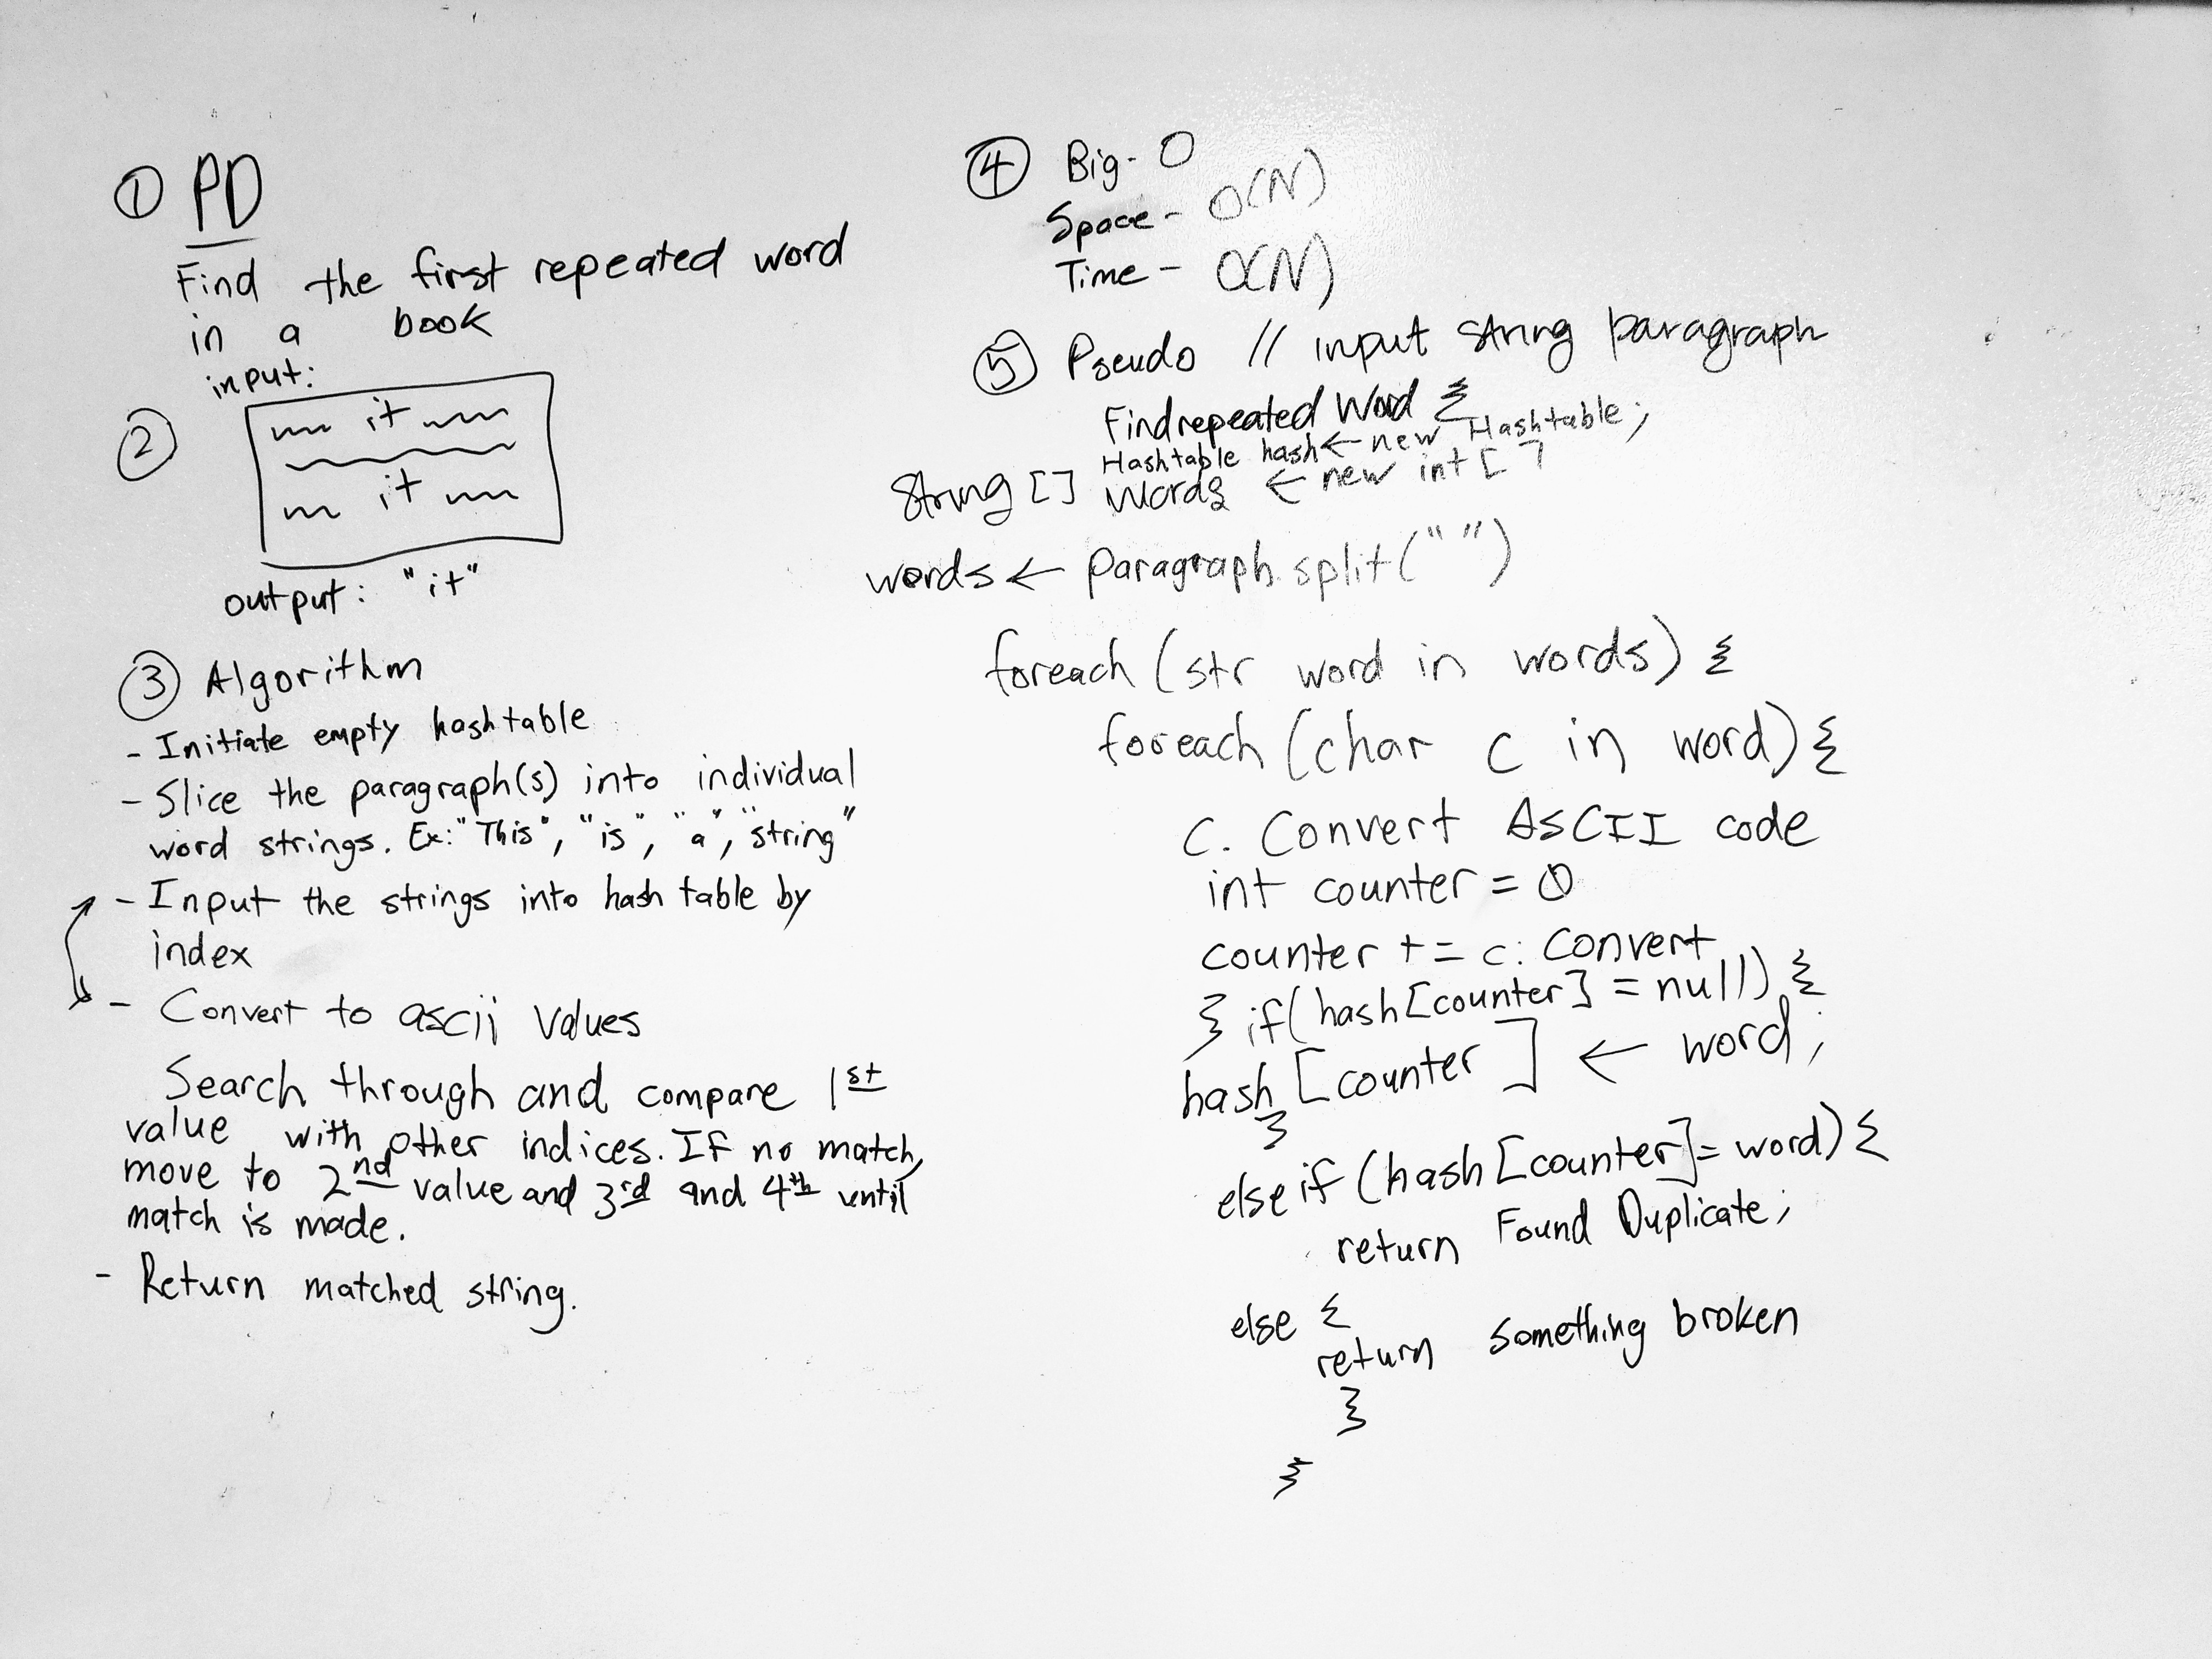 ① PD
Find the first repeated word
in a book
input:
②
~~ it ~~
~~ it ~~
output: "it"
③ Algorithm
- Initiate empty hashtable
- Slice the paragraph(s) into individual
word strings. Ex: "This", "is", "a", "string"
- Input the strings into hash table by
index
- Convert to ascii values
Search through and compare 1st
value with other indices. If no match,
move to 2nd value and 3rd and 4th until
match is made.
- Return matched string.
④ Big-O
Space - O(N)
Time - O(N)
⑤ Pseudo // input string paragraph
Findrepeated Word {
Hashtable hash ← new Hashtable;
String [] words ← new int [ ]
words ← paragraph.split(" ")
foreach (str word in words) {
foreach (char c in word) {
c. Convert ASCII code
int counter = 0
counter += c. Convert
} if (hash [counter] = null) {
hash [counter] ← word;
}
else if (hash [counter] = word) {
return Found Duplicate;
else {
return something broken
}
}